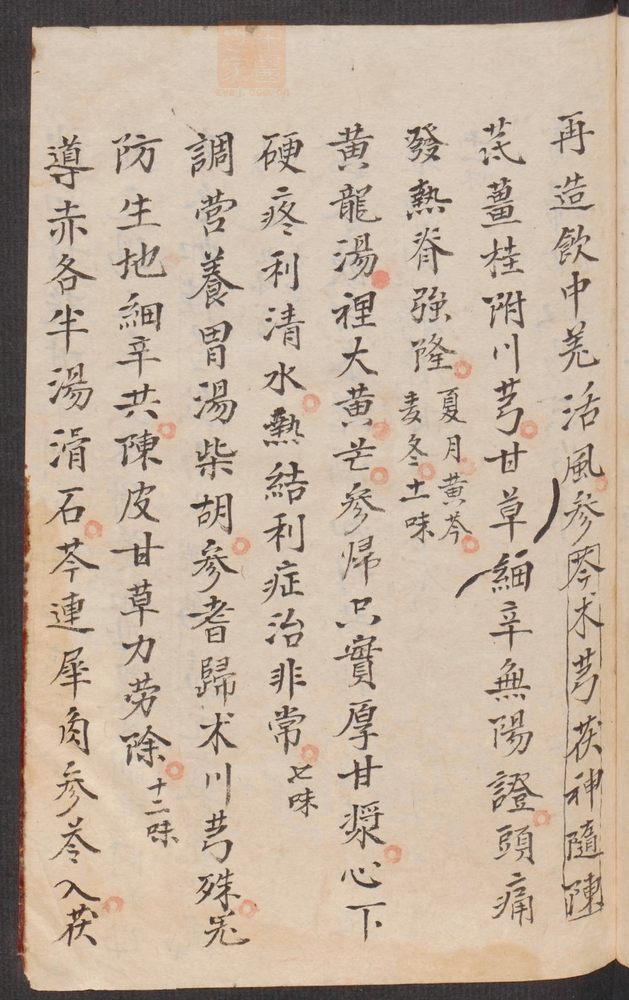 再造飲中羌活風參芩术芎茯神隨陳
芪薑桂附川芎甘草細辛無陽證頭痛
發熱脊強隆夏月黄芩
麦冬土味
黄龍湯裡大黄芒參歸只實厚甘漿心下
硬疼利清水熱結利症治非常七味
調营養胃湯柴胡參耆歸术川芎殊羌
防生地細辛共陳皮甘草力劳除十二味
導赤各半湯滑石芩連犀角參苓入茯